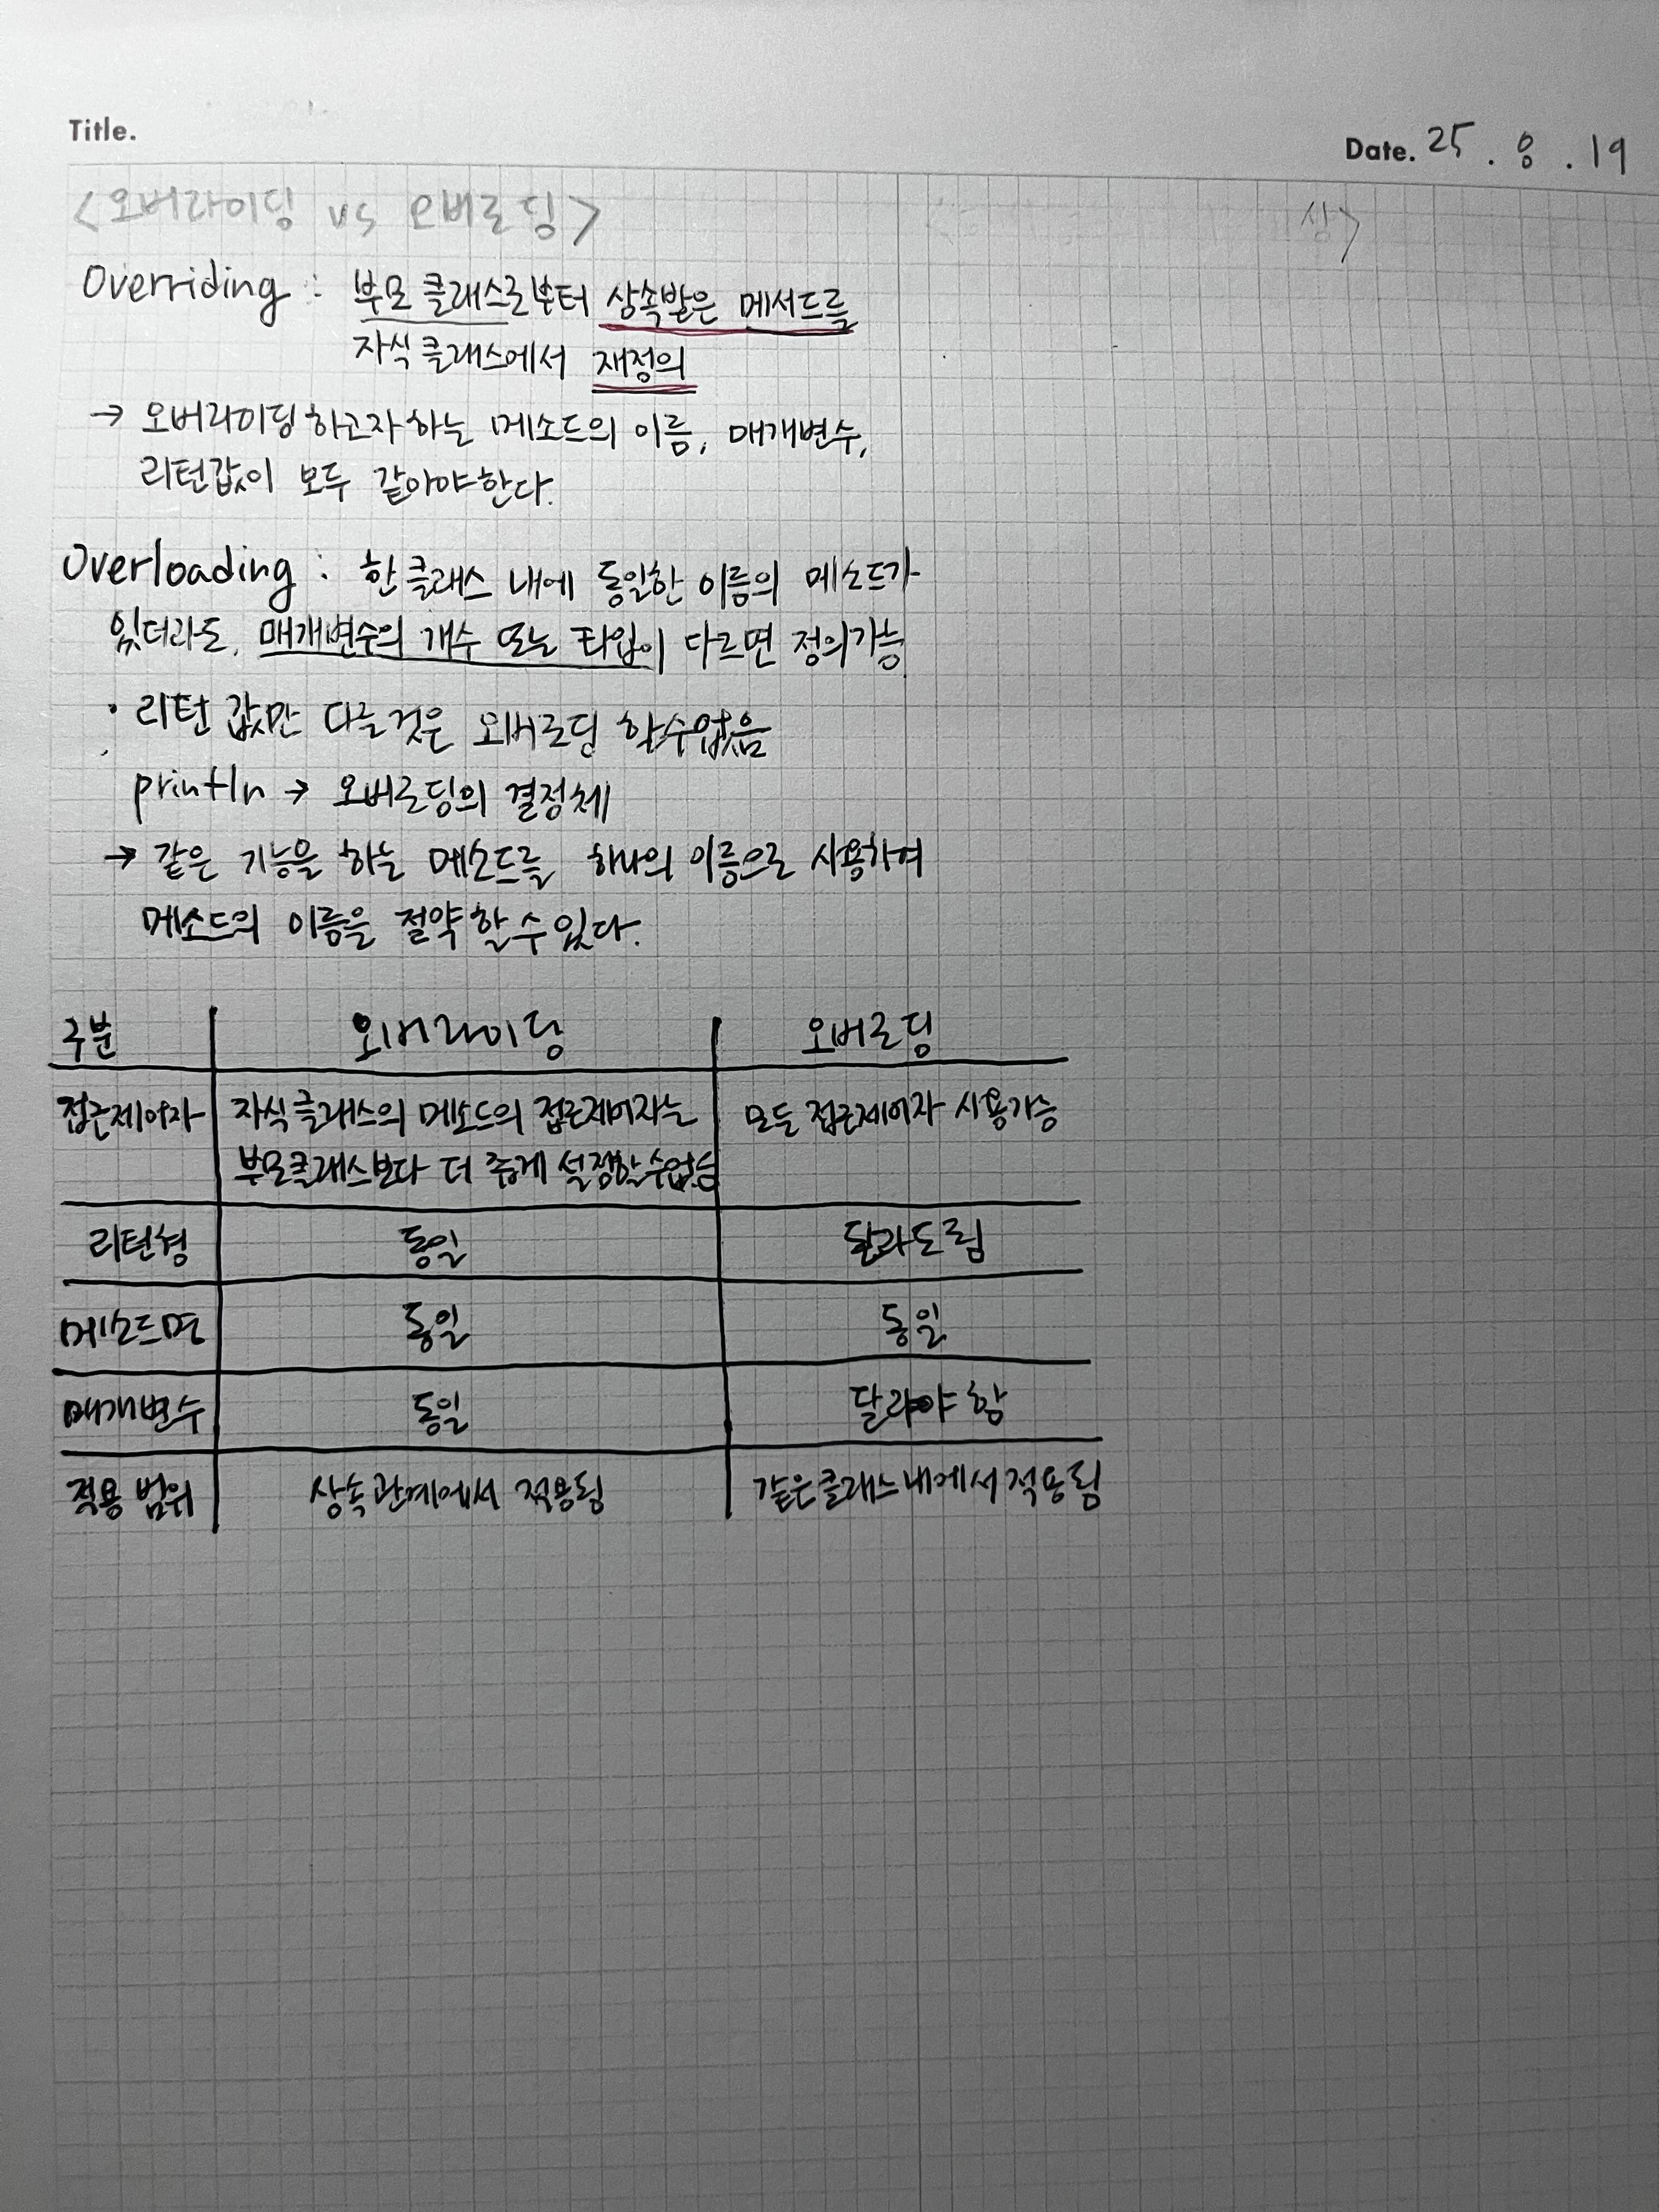 Title.
Date. 25 . 8 . 19
<오버라이딩 vs 오버로딩>
상>
Overriding : 부모 클래스로부터 상속받은 메서드를
자식 클래스에서 재정의
→ 오버라이딩하고자 하는 메소드의 이름, 매개변수,
리턴값이 모두 같아야한다.
Overloading : 한 클래스 내에 동일한 이름의 메소드가
있더라도, 매개변수의 개수 또는 타입이 다르면 정의가능
• 리턴 값만 다를것은 오버로딩 할수없음
println → 오버로딩의 결정체
→ 같은 기능을 하는 메소드를 하나의 이름으로 사용하여
메소드의 이름을 절약할 수 있다.
구분 오버라이딩 오버로딩
접근제어자 자식클래스의 메소드의 접근제어자는 모든 접근제어자 사용가능
부모클래스보다 더 좁게 설정할수없음
리턴형 동일 달라도됨
메소드명 동일 동일
매개변수 동일 달라야 함
적용 범위 상속관계에서 적용됨 같은클래스내에서 적용됨